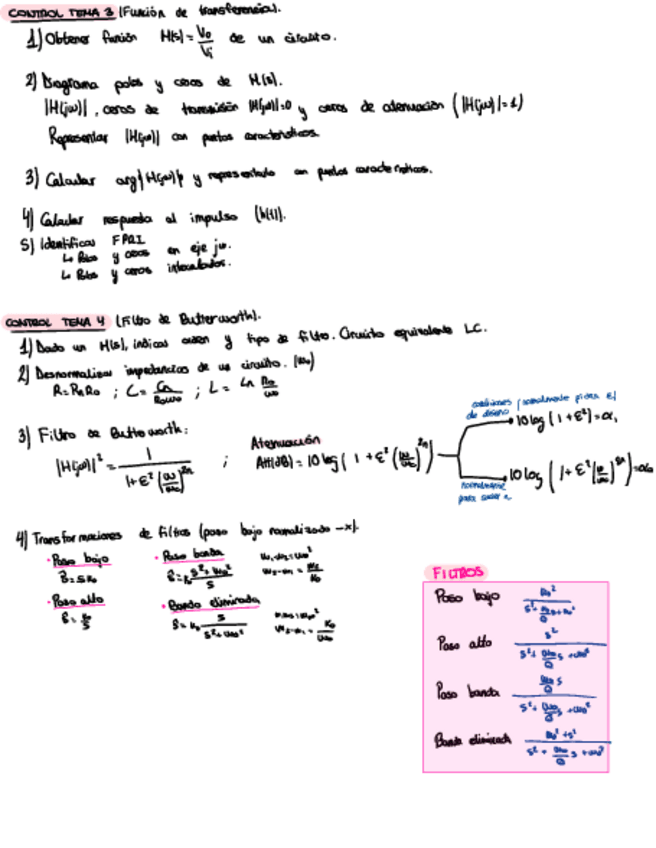 CONTROL TEMA 3 (Función de transferencia).
1) Obtener función H(s) = Vo/Vi de un circuito.
2) Diagrama polos y ceros de H(s).
|H(jω)|, ceros de transmisión |H(jω)|=0 y ceros de atenuación (|H(jω)|=1)
Representar |H(jω)| con puntos característicos.
3) Calcular arg{H(jω)} y representarlo con puntos característicos.
4) Calcular respuesta al impulso (h(t)).
5) Identificar FPRI
↳ Polos y ceros en eje jω.
↳ Polos y ceros intercalados.
CONTROL TEMA 4 (Filtro de Butterworth).
1) Dado un H(s), indicar orden y tipo de filtro. Circuito equivalente LC.
2) Desnormalizar impedancias de un circuito. (ω₀)
R = Rn R₀ ; C = Cn/(R₀ω₀) ; L = Ln R₀/ω₀
3) Filtro de Butterworth:
|H(jω)|² = 1/(1+ε²(ω/ωc)^2n) ;
Atenuación
Att(dB) = 10 log(1+ε²(ω/ωc)^2n)
condiciones de diseño
10 log(1+ε²) = α₁
normalmente para sacar n
10 log(1+ε²(ω/ωc)^2n) = α₀
4) Transformaciones de filtros (paso bajo normalizado → x).
· Paso bajo
· Paso banda
· Paso alto
· Banda eliminada
FILTROS
Paso bajo
Paso alto s²/(s²+(ω₀/Q)s+ω₀²)
Paso banda (ω₀/Q)s/(s²+(ω₀/Q)s+ω₀²)
Banda eliminada (ω₀²+s²)/(s²+(ω₀/Q)s+ω₀²)